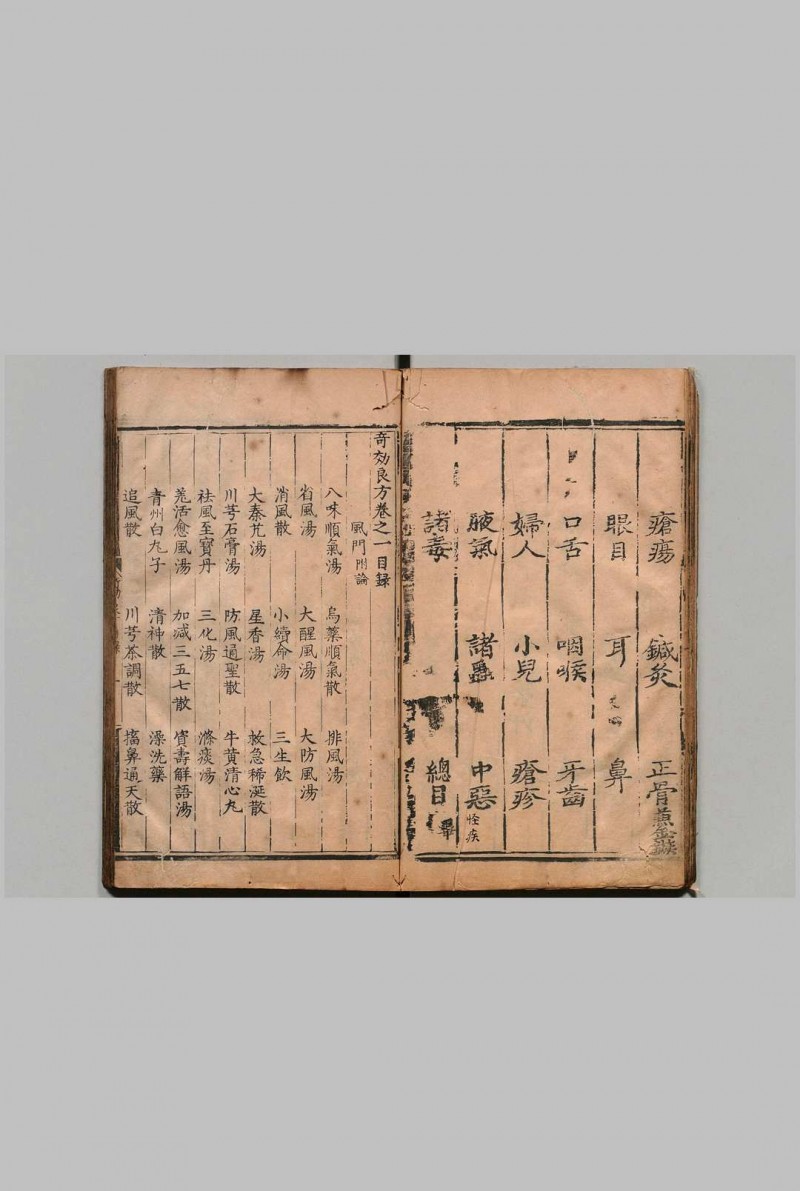 瘡瘍 鍼灸 正骨兼金鏃
眼目 耳 鼻
口舌 咽喉 牙齒
婦人 小兒 瘡疹
腋氣 諸蟲 中惡怪疾
諸毒 總目畢
奇効良方卷之一目録
風門附論
八味順氣湯 烏藥順氣散 排風湯
省風湯 大醒風湯 大防風湯
消風散 小續命湯 三生飲
大秦艽湯 星香湯 救急稀涎散
川芎石膏湯 防風通聖散 牛黃清心丸
祛風至寶丹 三化湯 滌痰湯
羗活愈風湯 加減三五七散 資壽解語湯
青州白丸子 清神散 澡洗藥
追風散 川芎茶調散 搐鼻通天散